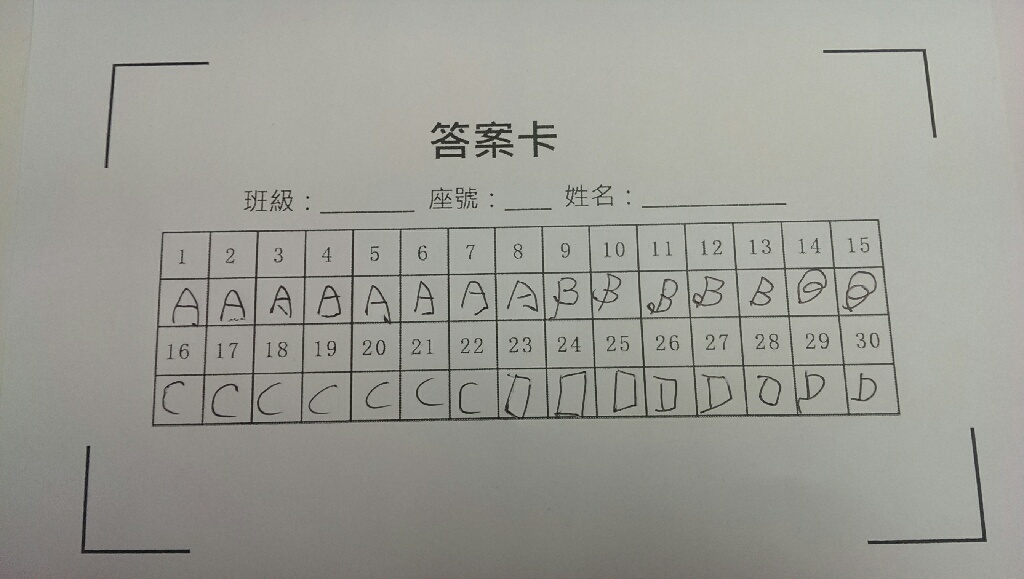 答案卡
班級：_______ 座號：____ 姓名：___________
1 2 3 4 5 6 7 8 9 10 11 12 13 14 15
A A A A A A A A B B B B B
16 17 18 19 20 21 22 23 24 25 26 27 28 29 30
C C C C C C C D D D D D